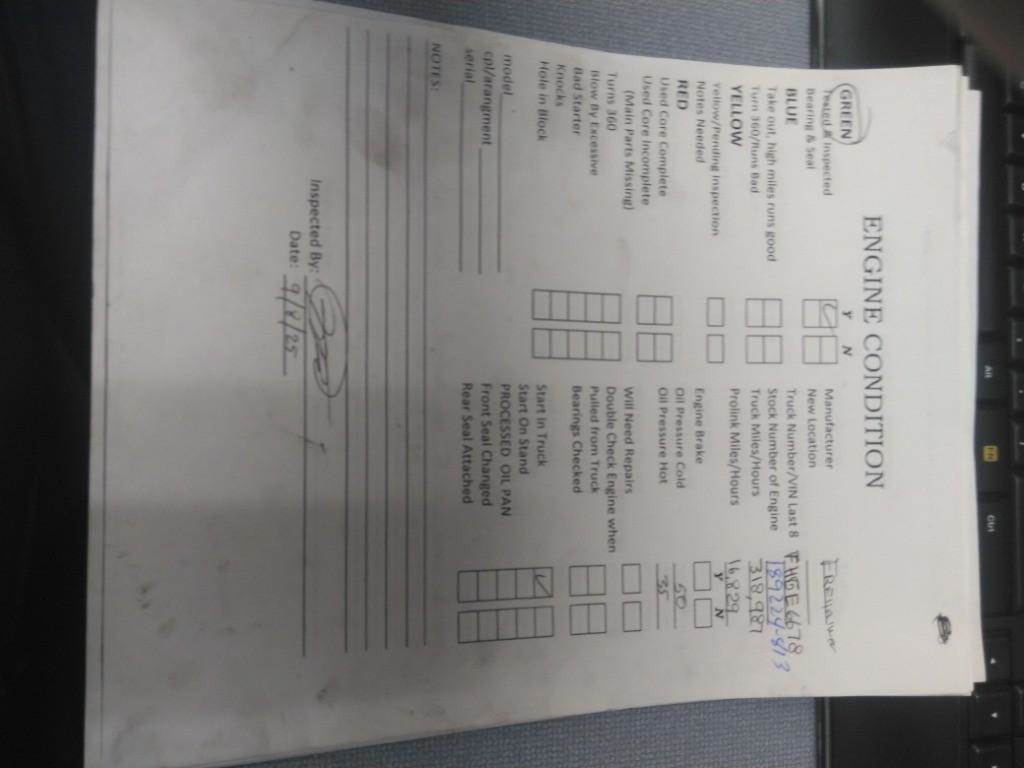 ENGINE CONDITION
Y N
GREEN
Tested & Inspected
Bearing & Seal
BLUE
Take out, high miles runs good
Turn 360/Runs Bad
YELLOW
Yellow/Pending Inspection
Notes Needed
RED
Used Core Complete
Used Core Incomplete
(Main Parts Missing)
Turns 360
Blow By Excessive
Bad Starter
Knocks
Hole in Block
model
cpl/arangment
serial
Manufacturer
New Location
Truck Number/VIN Last 8
Stock Number of Engine 189224-813
Truck Miles/Hours 318,987
Prolink Miles/Hours 16,829
Y N
Engine Brake
Oil Pressure Cold 50
Oil Pressure Hot 35
Will Need Repairs
Double Check Engine when
Pulled from Truck
Bearings Checked
Start in Truck
Start On Stand
PROCESSED OIL PAN
Front Seal Changed
Rear Seal Attached
NOTES:
Inspected By:
Date: 9/8/25
Alt
Fn
Ctrl